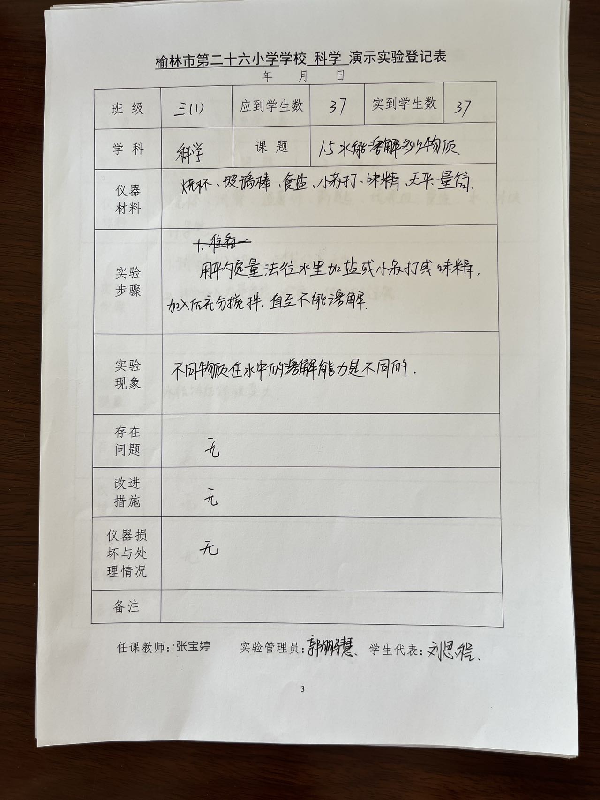 榆林市第二十六小学学校 科学 演示实验登记表
年 月 日
班 级 三(1) 应到学生数 37 实到学生数 37
学 科 科学 课 题 1.5水能溶解多少物质
仪器
材料
烧杯、玻璃棒、食盐、小苏打、味精、天平、量筒.
实验
步骤
用平均定量法往水里加盐或小苏打或味精,
加入后充分搅拌,直至不能溶解.
实验
现象
不同物质在水中的溶解能力是不同的.
存在
问题
无
改进
措施
无
仪器损
坏与处
理情况
无
备注
任课教师:张宝婷 实验管理员: 学生代表:刘思程.
3